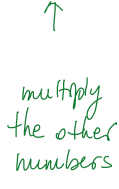 multiply
the other
numbers